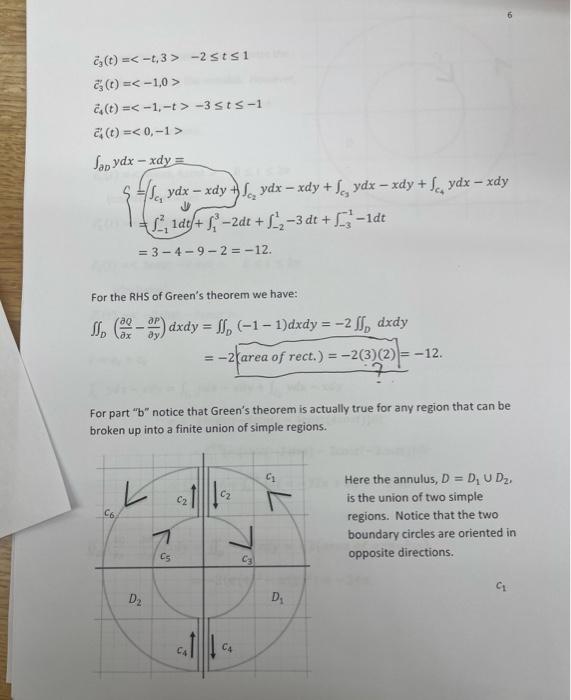 6
c⃗₃(t) =< −t, 3 > −2 ≤ t ≤ 1
c⃗₃′(t) =< −1,0 >
c⃗₄(t) =< −1, −t > −3 ≤ t ≤ −1
c⃗₄′(t) =< 0, −1 >
∫_∂D ydx − xdy =
= ∫_c₁ ydx − xdy + ∫_c₂ ydx − xdy + ∫_c₃ ydx − xdy + ∫_c₄ ydx − xdy
= ∫_{−1}^{2} 1dt + ∫_{1}^{3} −2dt + ∫_{−2}^{1} −3 dt + ∫_{−3}^{−1} −1dt
= 3 − 4 − 9 − 2 = −12.
For the RHS of Green's theorem we have:
∬_D (∂Q/∂x − ∂P/∂y) dxdy = ∬_D (−1 − 1)dxdy = −2 ∬_D dxdy
= −2(area of rect.) = −2(3)(2) = −12.
?
For part "b" notice that Green's theorem is actually true for any region that can be
broken up into a finite union of simple regions.
Here the annulus, D = D₁ ∪ D₂,
is the union of two simple
regions. Notice that the two
boundary circles are oriented in
opposite directions.
c₁
c₁
c₂
c₂
c₆
c₅
c₃
D₂
D₁
c₄
c₄